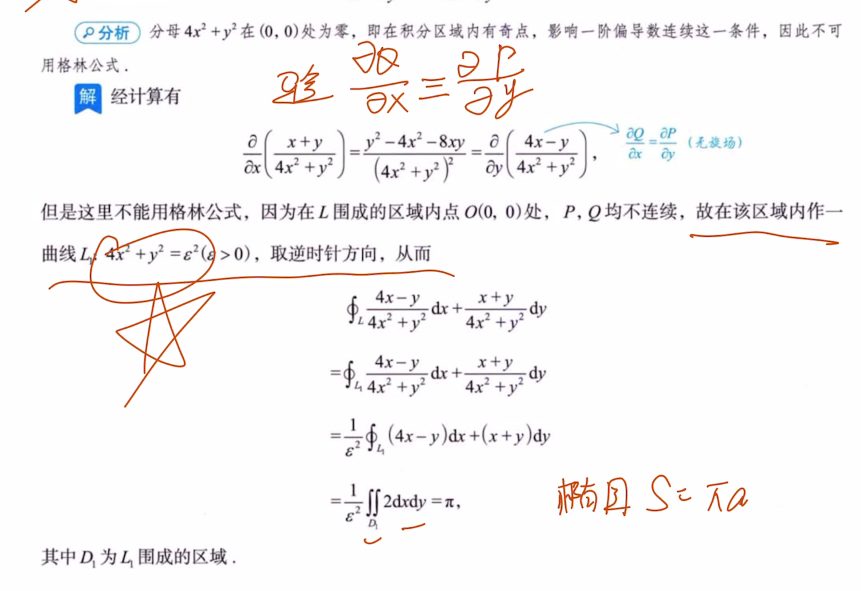 分析 分母 4x² + y² 在 (0, 0) 处为零，即在积分区域内有奇点，影响一阶偏导数连续这一条件，因此不可
用格林公式．
验 ∂Q/∂x ≡ ∂P/∂y
解 经计算有
∂/∂x((x+y)/(4x²+y²)) = (y²−4x²−8xy)/(4x²+y²)² = ∂/∂y((4x−y)/(4x²+y²)), ∂Q/∂x = ∂P/∂y (无旋场)
但是这里不能用格林公式，因为在 L 围成的区域内点 O(0, 0) 处，P, Q 均不连续，故在该区域内作一
曲线 L₁: 4x² + y² = ε² (ε > 0)，取逆时针方向，从而
∮_L (4x−y)/(4x²+y²) dx + (x+y)/(4x²+y²) dy
= ∮_L₁ (4x−y)/(4x²+y²) dx + (x+y)/(4x²+y²) dy
= 1/ε² ∮_L₁ (4x−y)dx + (x+y)dy
= 1/ε² ∬_D₁ 2dxdy = π,
椭圆 S = πa
其中 D₁ 为 L₁ 围成的区域．